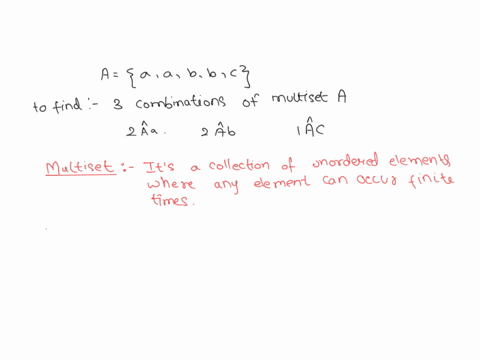 A = {a, a, b, b, c}
to find :- 3 combinations of multiset A
2 Âa. 2 Âb 1 ÂC
Multiset :- It's a collection of unordered elements
where any element can occur finite
times.